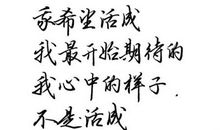 我希望活成
我最开始期待的
我心中的样子.
不是活成